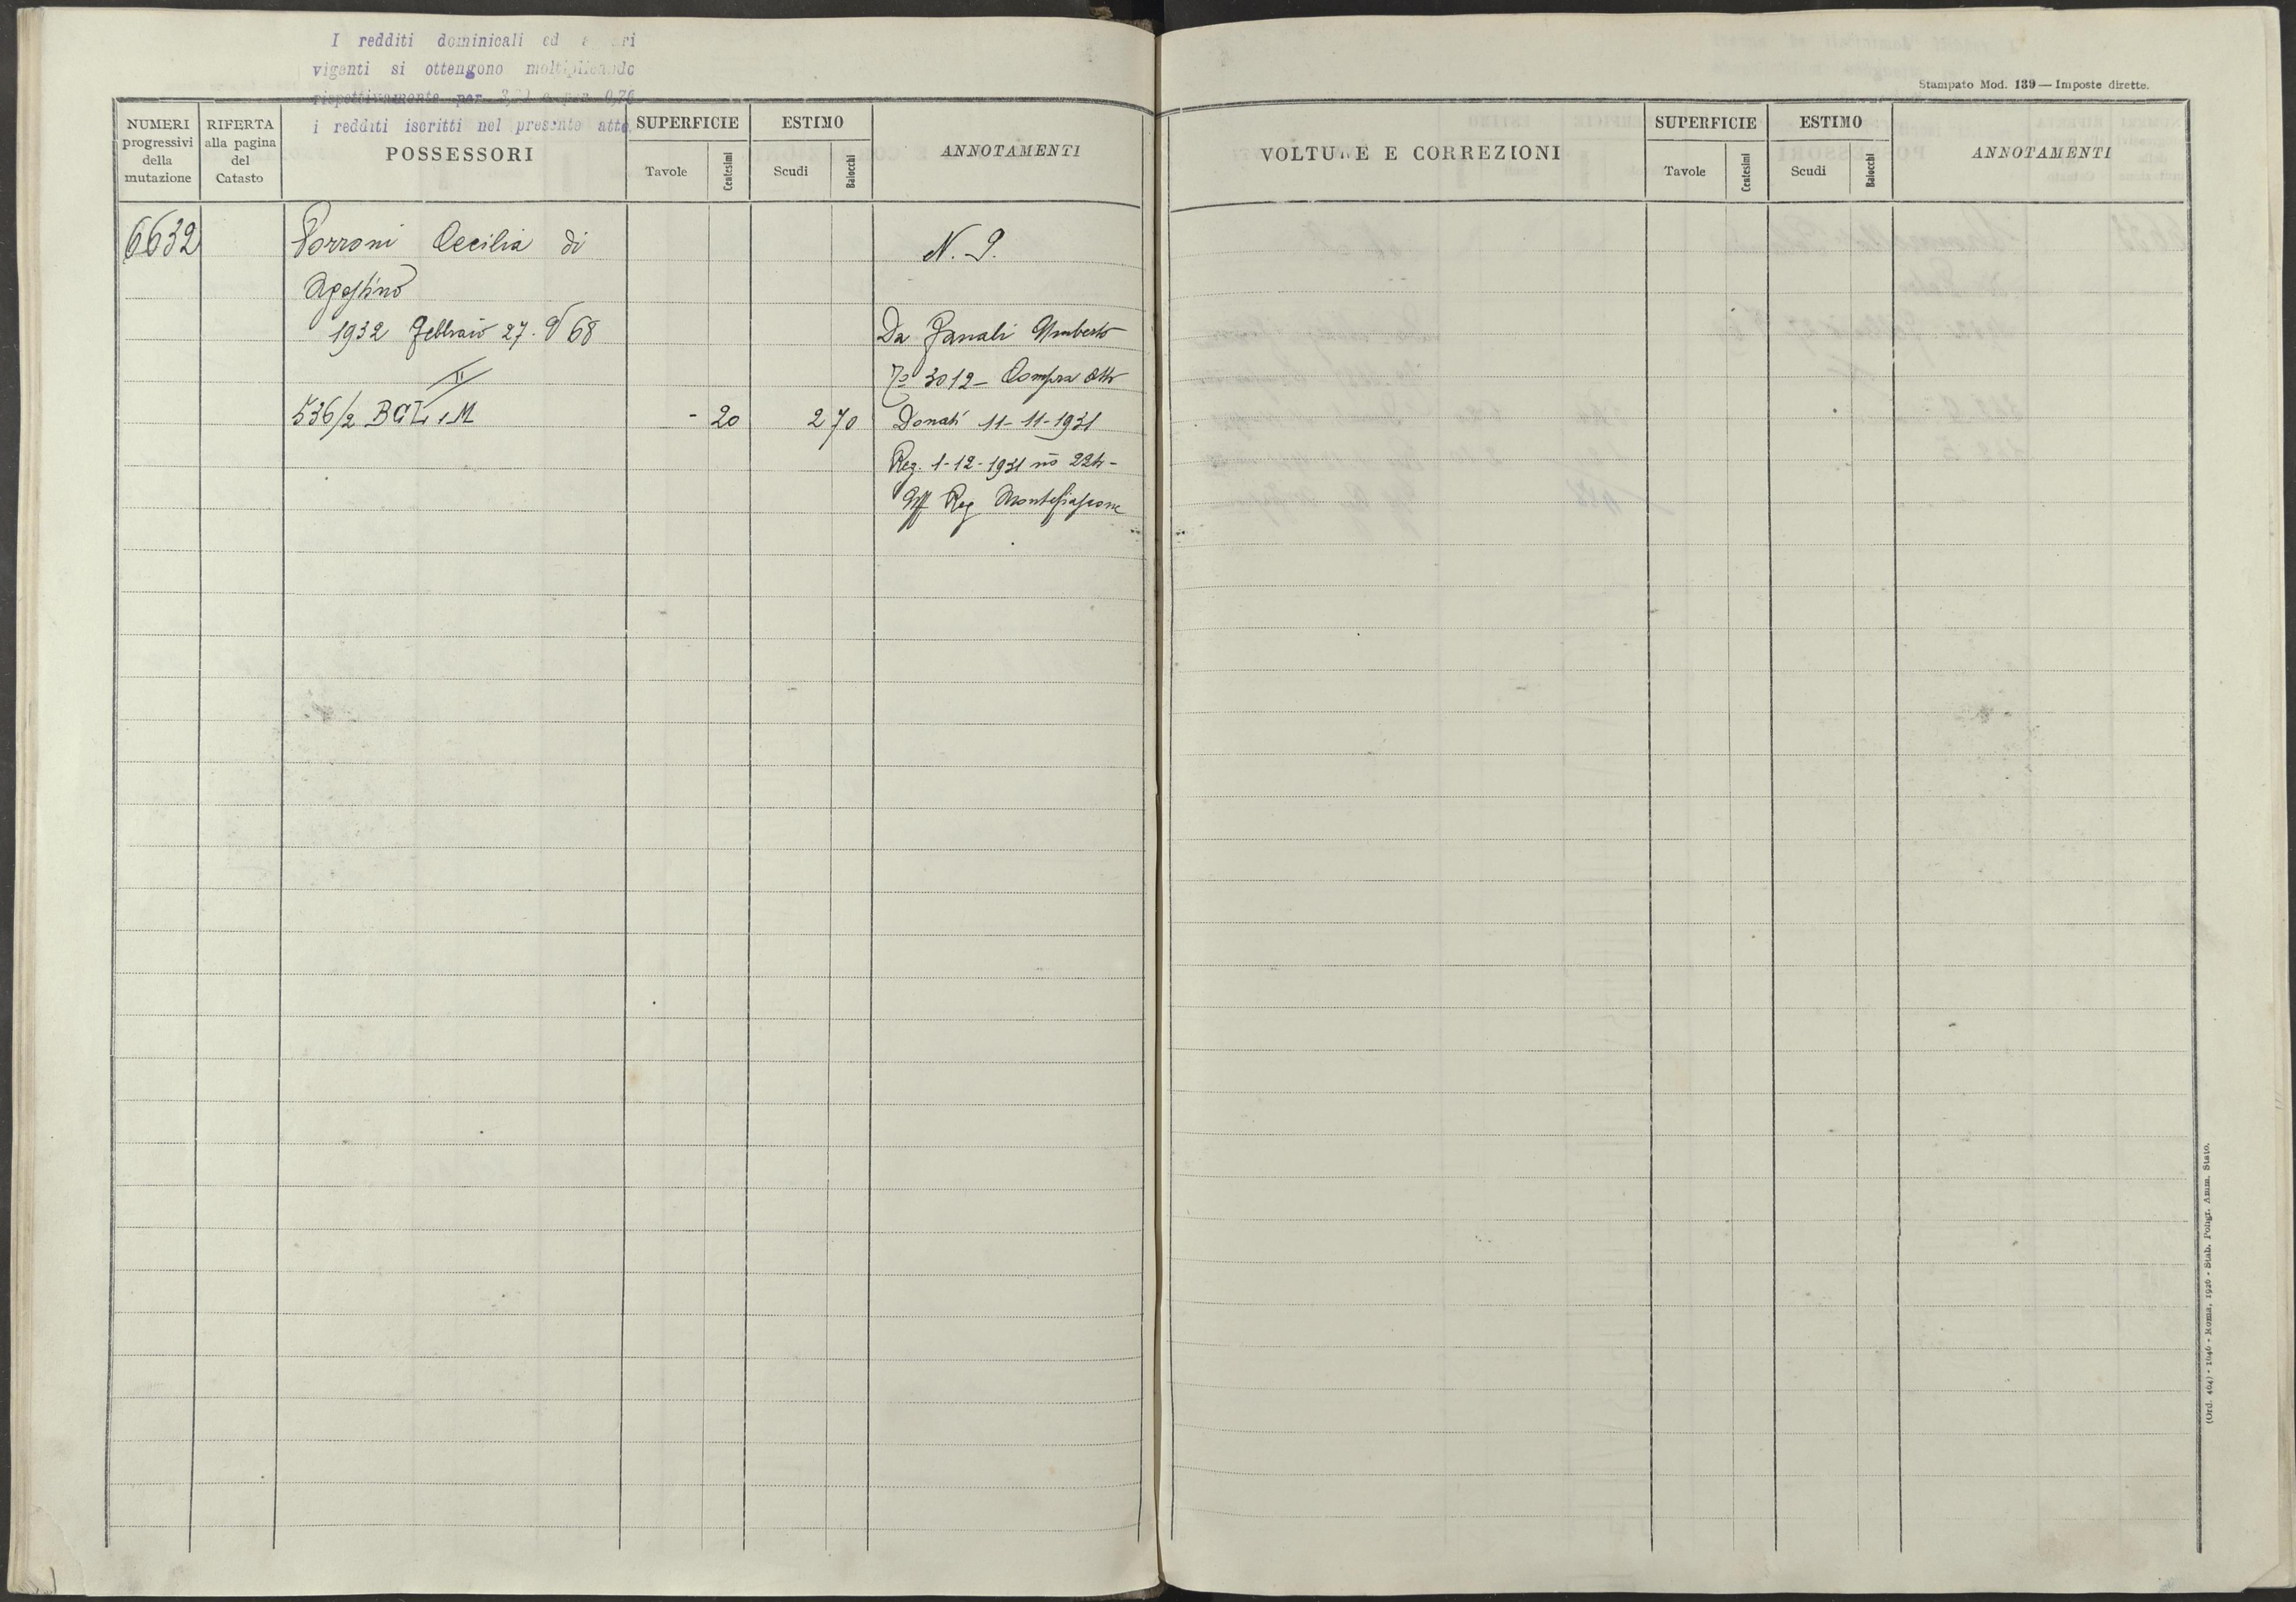 I redditi dominicali ed
viganti si ottengono moltiplicando
rispettivamente per e per 0,76
i redditi iscritti nel presente atto.
Stampato Mod. 139 — Imposte dirette.
NUMERI progressivi della mutazione
RIFERTA alla pagina del Catasto
POSSESSORI
SUPERFICIE
Tavole
Centesimi
ESTIMO
Scudi
Baiocchi
ANNOTAMENTI
VOLTURE E CORREZIONI
SUPERFICIE
Tavole
Centesimi
ESTIMO
Scudi
Baiocchi
ANNOTAMENTI
6632 Porroni Cecilia di N. 9.
Agostino
1932 Febbraio 27. 68 Da Fanali Umberto
II 3012 - Compra Atto
536/2 - 20 2 70 Donati 11-11-1931
Reg. 1-12-1931 no 224-
Uff Reg Montefiascone
(Ord. 404) - 1046 - Roma, 1926 - Stab. Poligr. Amm. Stato.